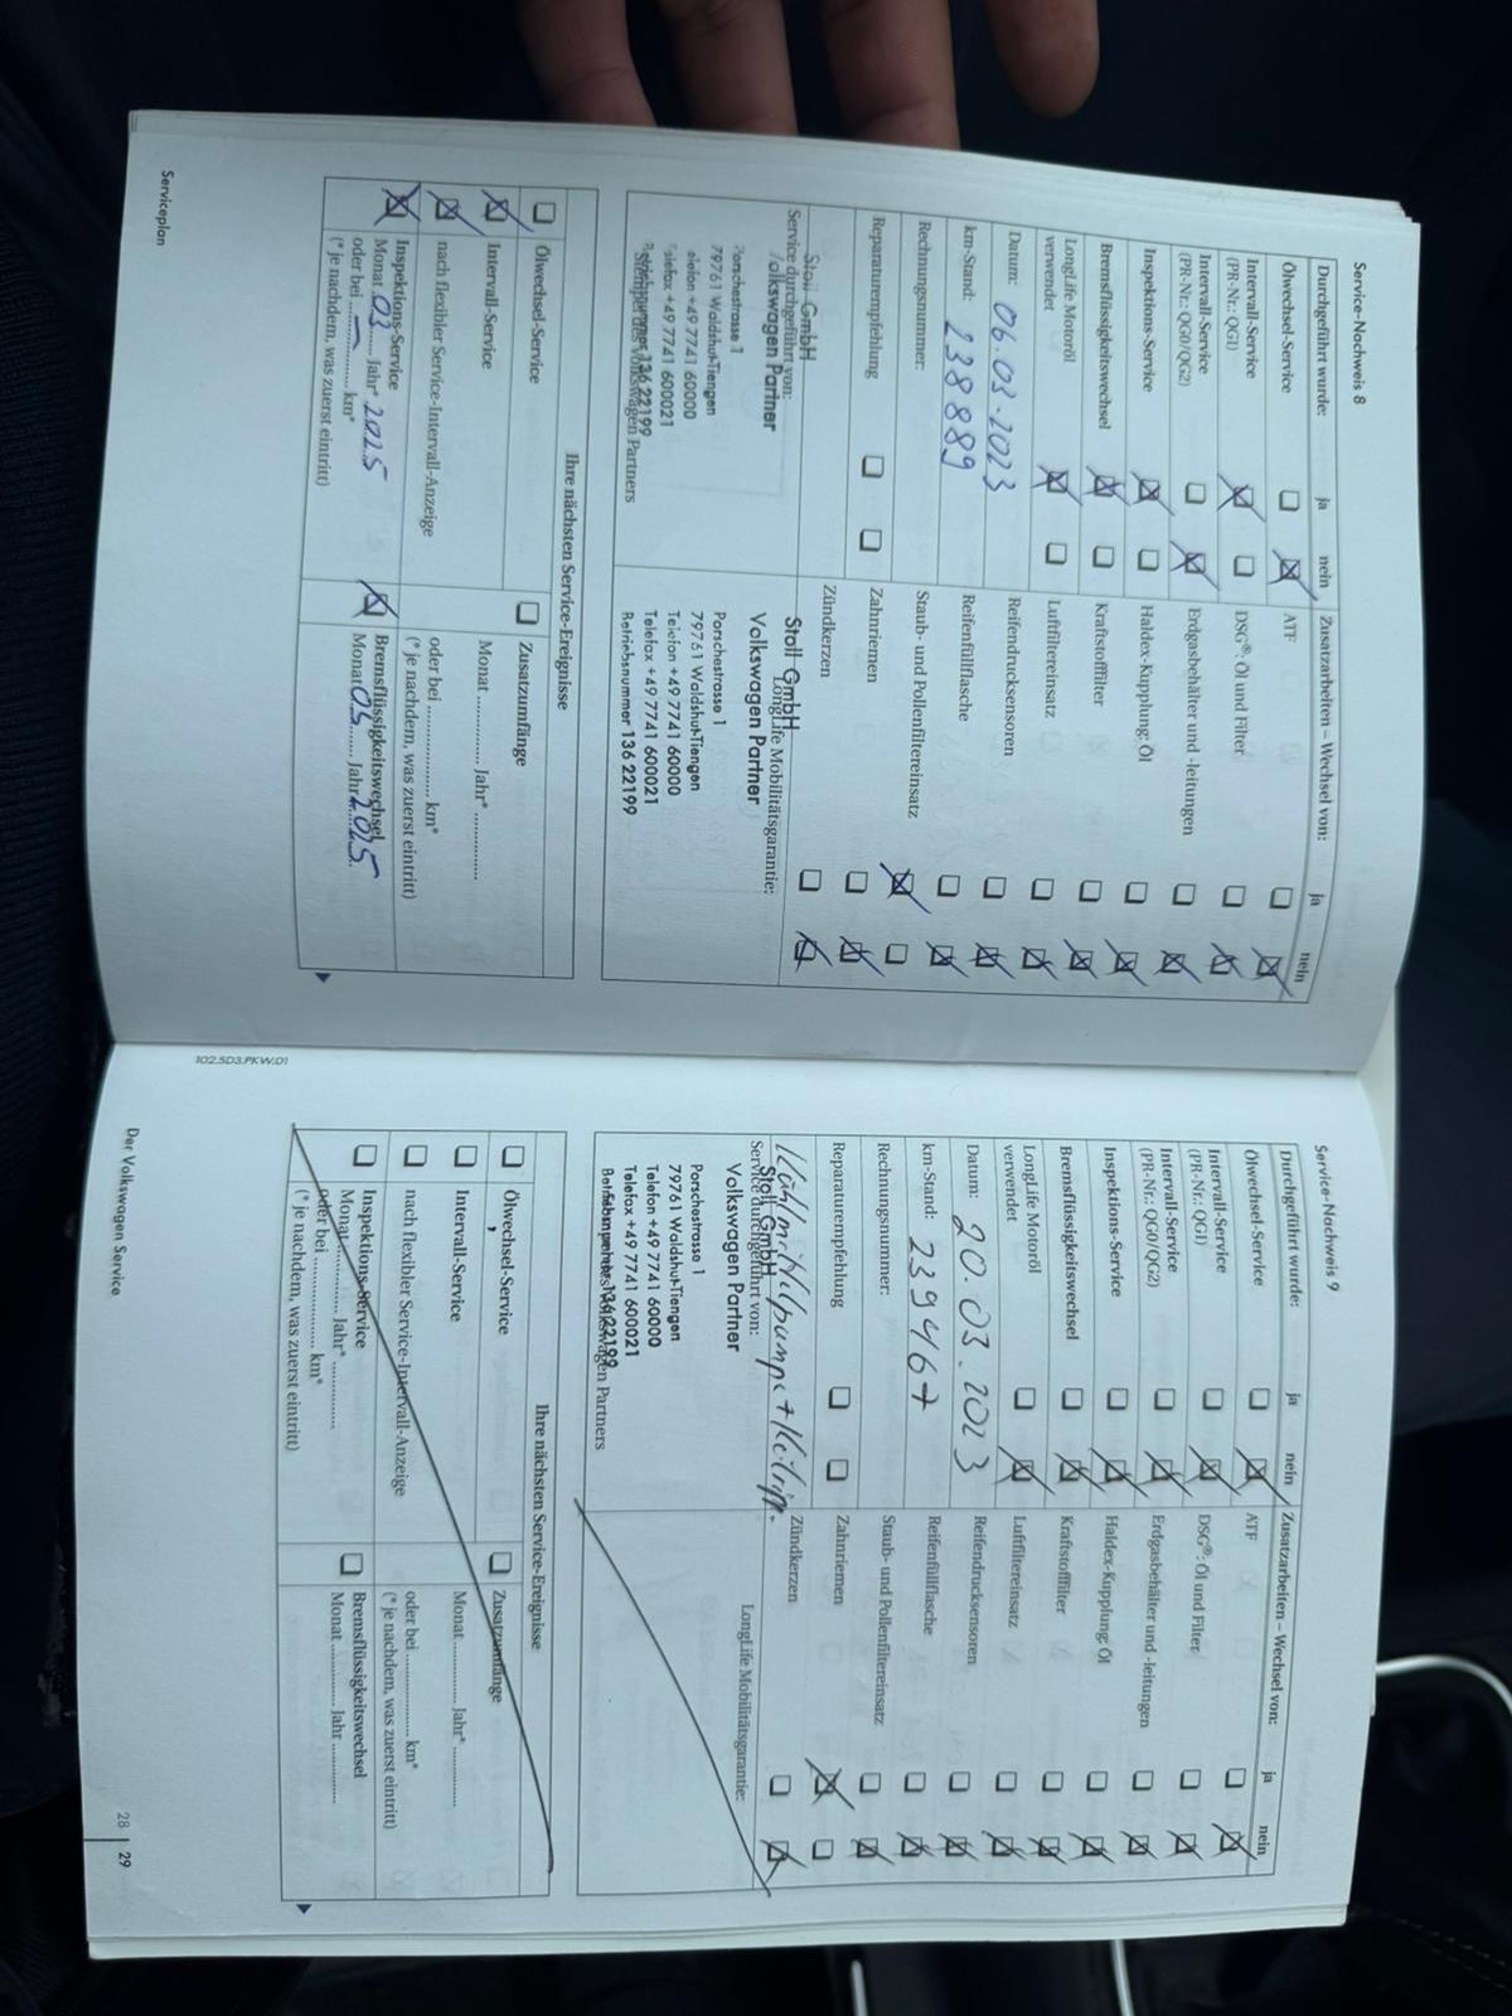 Service-Nachweis 8
Durchgeführt wurde: ja nein
Ölwechsel-Service
Intervall-Service
(PR-Nr.: QG1)
Intervall-Service
(PR-Nr.: QG0/QG2)
Inspektions-Service
Bremsflüssigkeitswechsel
LongLife Motoröl
verwendet
Datum: 06.03.2023
km-Stand: 238889
Rechnungsnummer:
Reparaturempfehlung
Zusatzarbeiten – Wechsel von: ja nein
ATF
DSG®: Öl und Filter
Erdgasbehälter und -leitungen
Haldex-Kupplung: Öl
Kraftstofffilter
Luftfiltereinsatz
Reifendrucksensoren
Reifenfüllflasche
Staub- und Pollenfiltereinsatz
Zahnriemen
Zündkerzen
Service durchgeführt von:
Stoll GmbH
Volkswagen Partner
Porschestrasse 1
79761 Waldshut-Tiengen
Telefon +49 7741 60000
Telefax +49 7741 600021
Betriebsnummer 136 22199
Stempel des Volkswagen Partners
LongLife Mobilitätsgarantie:
Stoll GmbH
Volkswagen Partner
Porschestrasse 1
79761 Waldshut-Tiengen
Telefon +49 7741 60000
Telefax +49 7741 600021
Betriebsnummer 136 22199
Ihre nächsten Service-Ereignisse
Ölwechsel-Service
Intervall-Service
nach flexibler Service-Intervall-Anzeige
Inspektions-Service
Monat 03 Jahr* 2025
oder bei — km*
(* je nachdem, was zuerst eintritt)
Zusatzumfänge
Monat ............ Jahr* ............
oder bei .................. km*
(* je nachdem, was zuerst eintritt)
Bremsflüssigkeitswechsel
Monat 03 Jahr 2025
Serviceplan
102.5D3.PKW.01
Service-Nachweis 9
Durchgeführt wurde: ja nein
Ölwechsel-Service
Intervall-Service
(PR-Nr.: QG1)
Intervall-Service
(PR-Nr.: QG0/QG2)
Inspektions-Service
Bremsflüssigkeitswechsel
LongLife Motoröl
verwendet
Datum: 20.03.2023
km-Stand: 239467
Rechnungsnummer:
Reparaturempfehlung
Zusatzarbeiten – Wechsel von: ja nein
ATF
DSG®: Öl und Filter
Erdgasbehälter und -leitungen
Haldex-Kupplung: Öl
Kraftstofffilter
Luftfiltereinsatz
Reifendrucksensoren
Reifenfüllflasche
Staub- und Pollenfiltereinsatz
Zahnriemen
Zündkerzen
Service durchgeführt von:
Stoll GmbH
Volkswagen Partner
Porschestrasse 1
79761 Waldshut-Tiengen
Telefon +49 7741 60000
Telefax +49 7741 600021
Betriebsnummer 136 22199
Stempel des Volkswagen Partners
LongLife Mobilitätsgarantie:
Ihre nächsten Service-Ereignisse
Ölwechsel-Service
Intervall-Service
nach flexibler Service-Intervall-Anzeige
Inspektions-Service
Monat ............ Jahr* ............
oder bei .................. km*
(* je nachdem, was zuerst eintritt)
Zusatzumfänge
Monat ............ Jahr* ............
oder bei .................. km*
(* je nachdem, was zuerst eintritt)
Bremsflüssigkeitswechsel
Monat ............ Jahr ............
Der Volkswagen Service
28 | 29